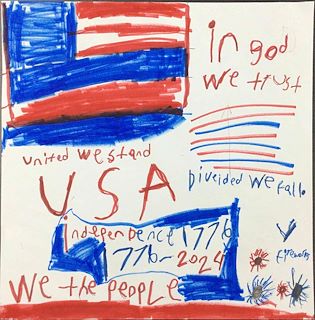 in god
we trust
united we stand
Divided we fall.
USA
independence 1776
1776-2024
Fireworks
We the PEOPLE